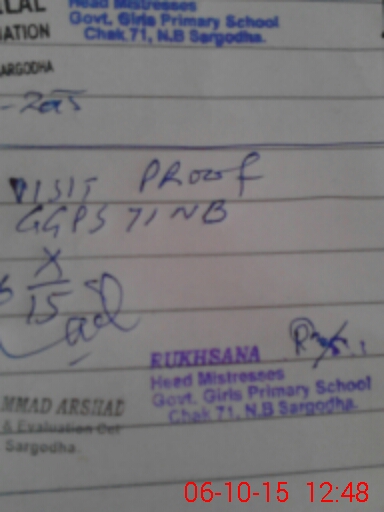 LAL
Head Mistresses
Govt. Girls Primary School
Chak 71, N.B Sargodha.
ATION
ARGODHA
VISIT PROOF
GGPS 71 NB
X
15
RUKHSANA
Heed Mistresses
Govt. Girls Primary School
Chak 71, N.B Sargodha.
MMAD ARSHAD
& Evaluation
Sargodha.
06-10-15 12:48